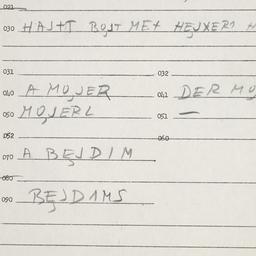 021
030 HAJ+T BOJT ME+ HEJXER1
031 032
040 A MOJER 041 DER MO
050 MOJERL 051 —
052 060
070 A BEJDIM
080
090 BEJD1MS